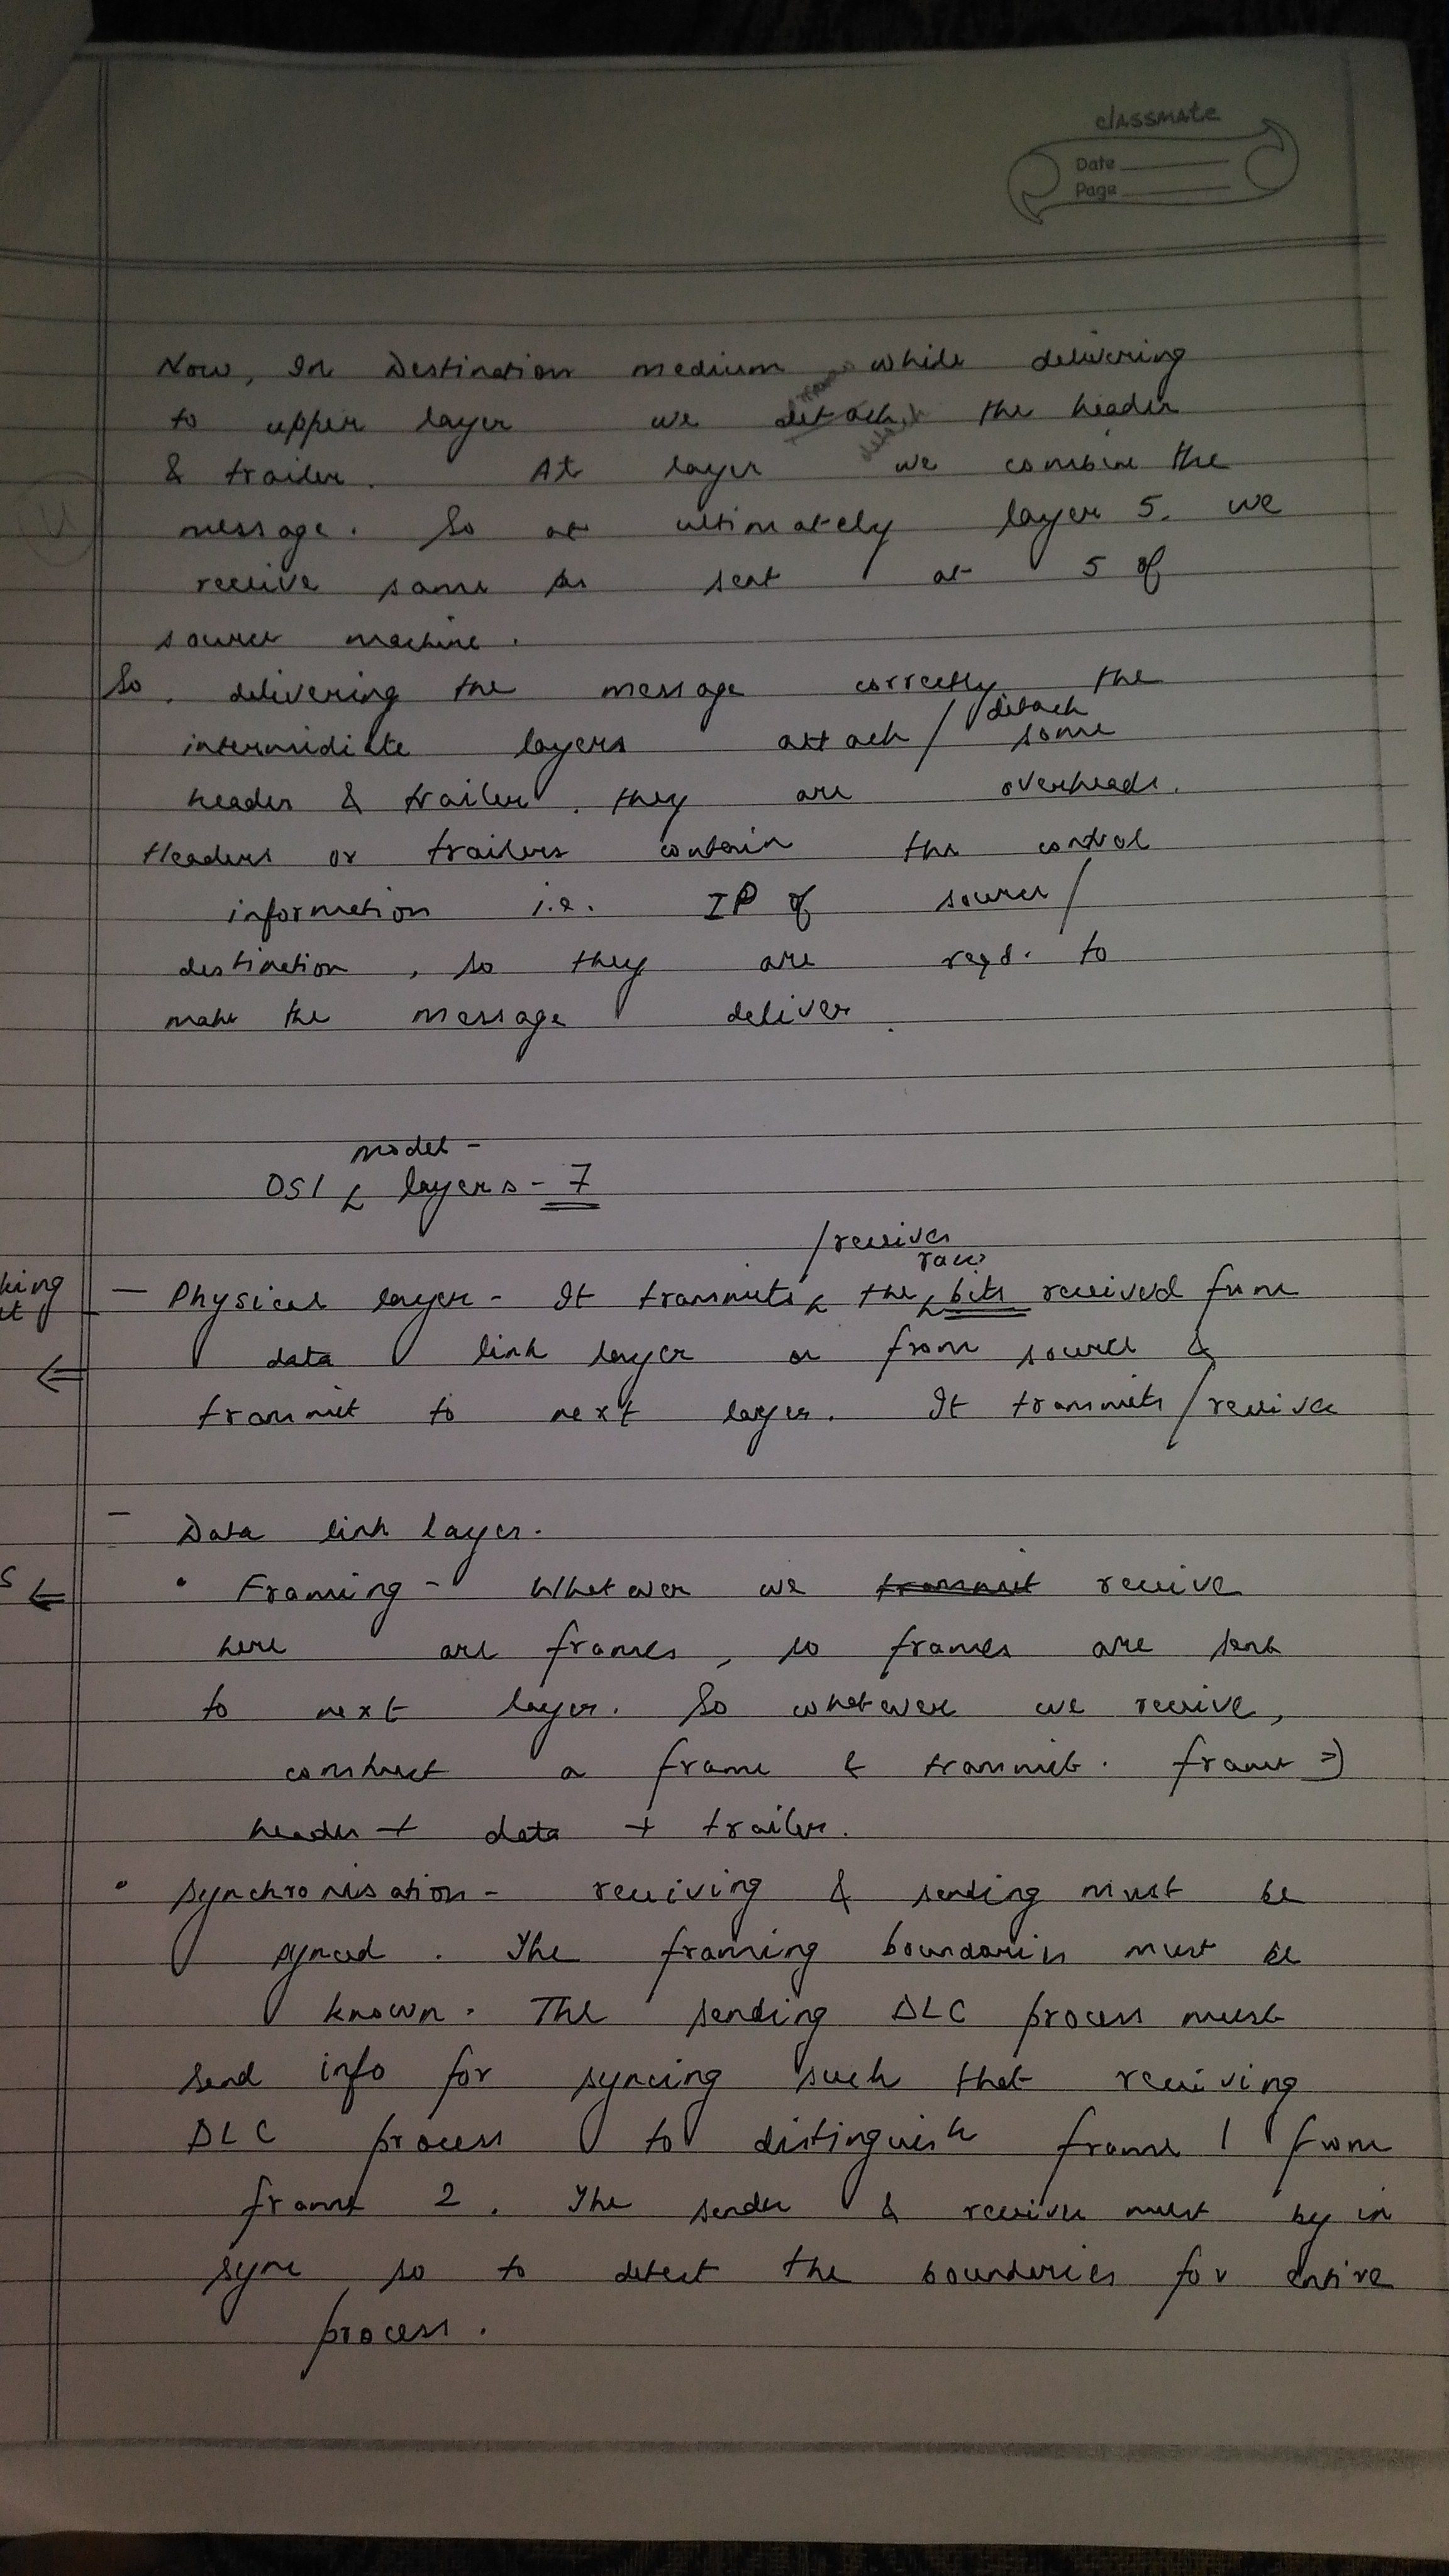 classmate
Date
Page
Now, In Destination medium while delivering
to upper layer we detach the header
& trailer. At layer we combine the
message. So at ultimately layer 5. we
receive same as sent at 5 of
source machine.
So, delivering the message correctly the
detach
intermidiate layers attach / some
header & trailer. they are overheads.
Headers or trailers contain the control
information i.e. IP of source /
destination, so they are reqd. to
make the message deliver.
model -
OSI layers - 7
/receives
raw
king
- Physical layer - It transmits the bits received from
data link layer or from source &
transmit to next layer. It transmits / receive
- Data link layer.
• Framing - Whatever we transmit receive
here are frames, so frames are sent
to next layer. So whatever we receive,
construct a frame & transmit. frame =>
header + data + trailer.
• Synchronisation - receiving & sending must be
synced. The framing boundaries must be
known. The sending DLC process must
send info for syncing such that receiving
DLC process to distinguish frame 1 from
frame 2. The sender & receiver must by in
sync so to detect the bounderies for entire
process.